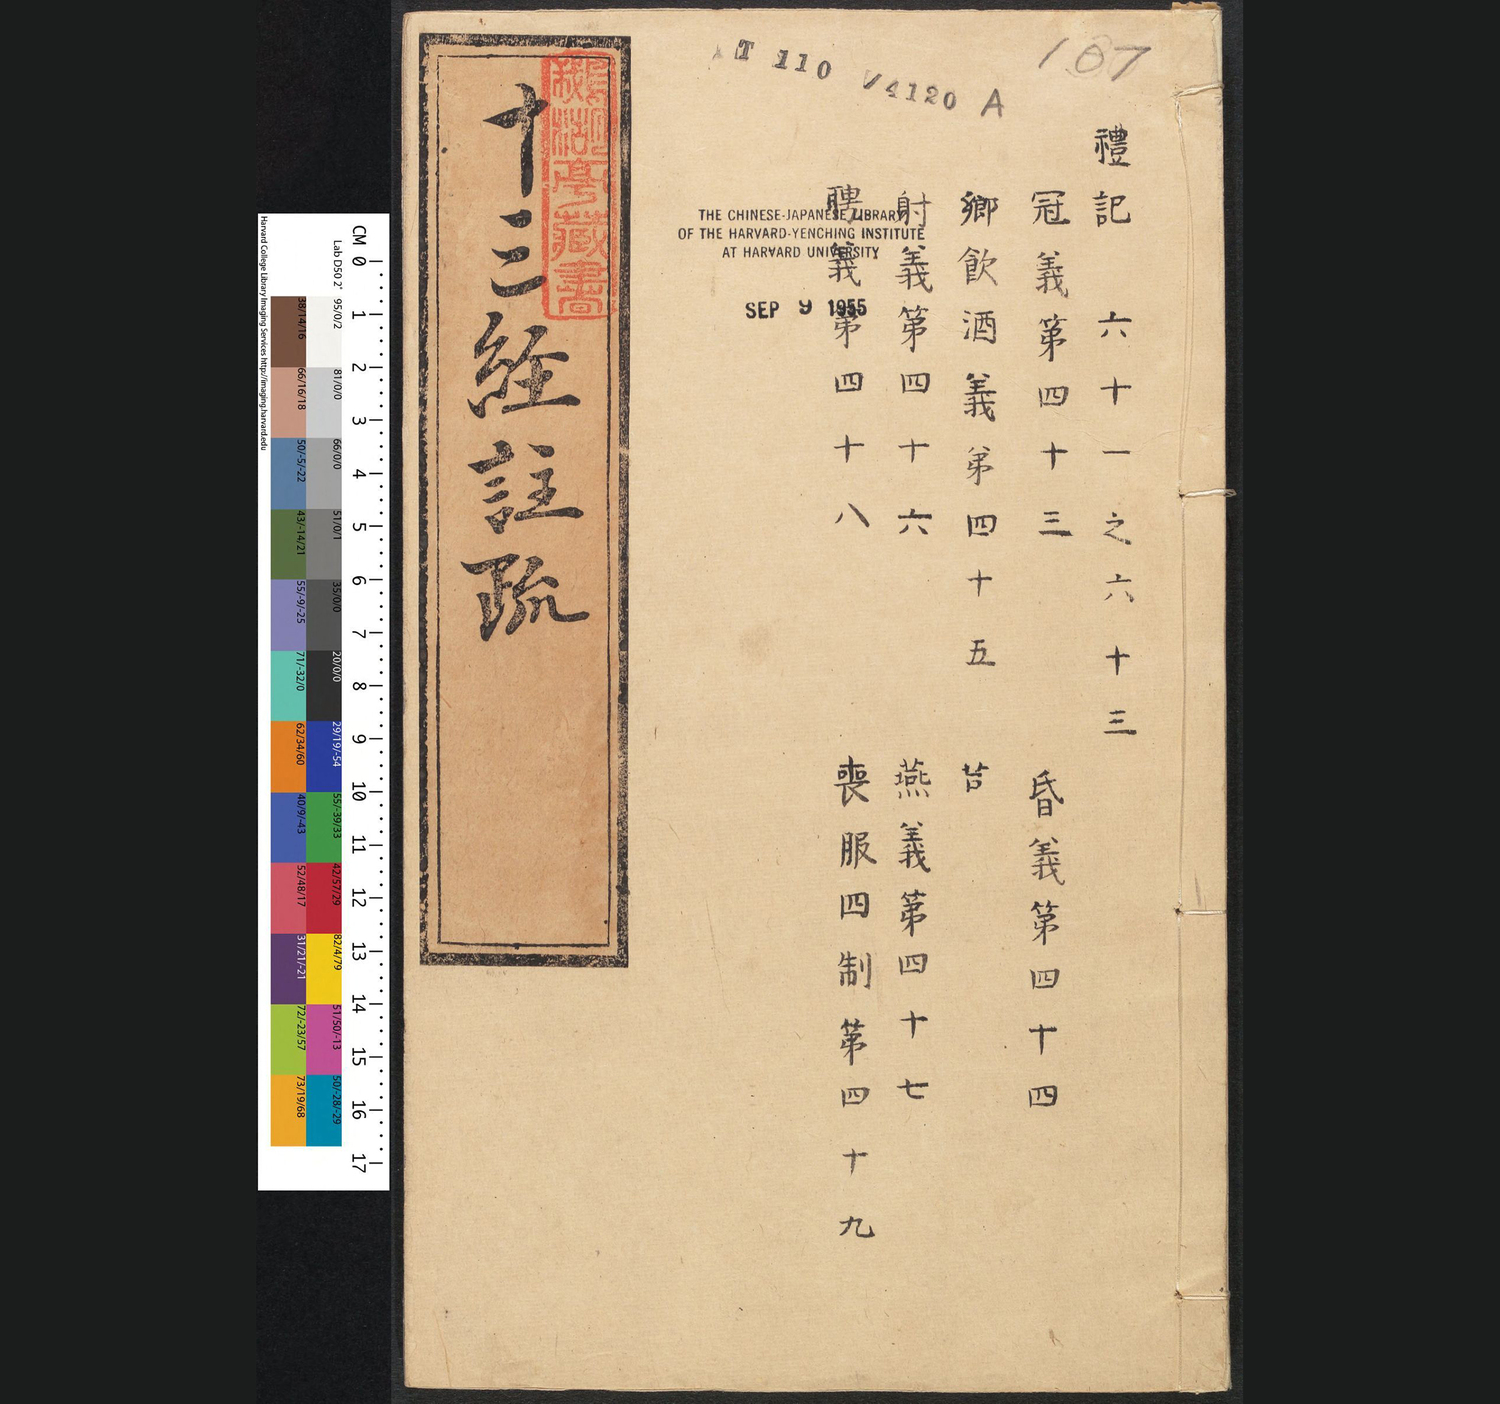 T 110 V4120 A
107
禮記 六十一之六十三
冠義第四十三
昏義第四十四
鄉飲酒義第四十五
射義第四十六
燕義第四十七
聘義第四十八
喪服四制第四十九
THE CHINESE-JAPANESE LIBRARY
OF THE HARVARD-YENCHING INSTITUTE
AT HARVARD UNIVERSITY
SEP 9 1955
十三經註疏
亭藏書
CM 0 1 2 3 4 5 6 7 8 9 10 11 12 13 14 15 16 17
Lab D50 2°
95/0/2 81/0/0 66/0/0 51/0/1 35/0/0 20/0/0 29/19/-54 55/-39/33 42/57/29 82/4/79 51/50/-13 50/-28/-29
38/14/16 66/16/18 50/-5/-22 43/-14/21 55/-9/-25 71/-32/0 62/34/60 40/9/-43 52/48/17 31/21/-21 72/-23/57 73/19/68
Harvard College Library Imaging Services http://imaging.harvard.edu